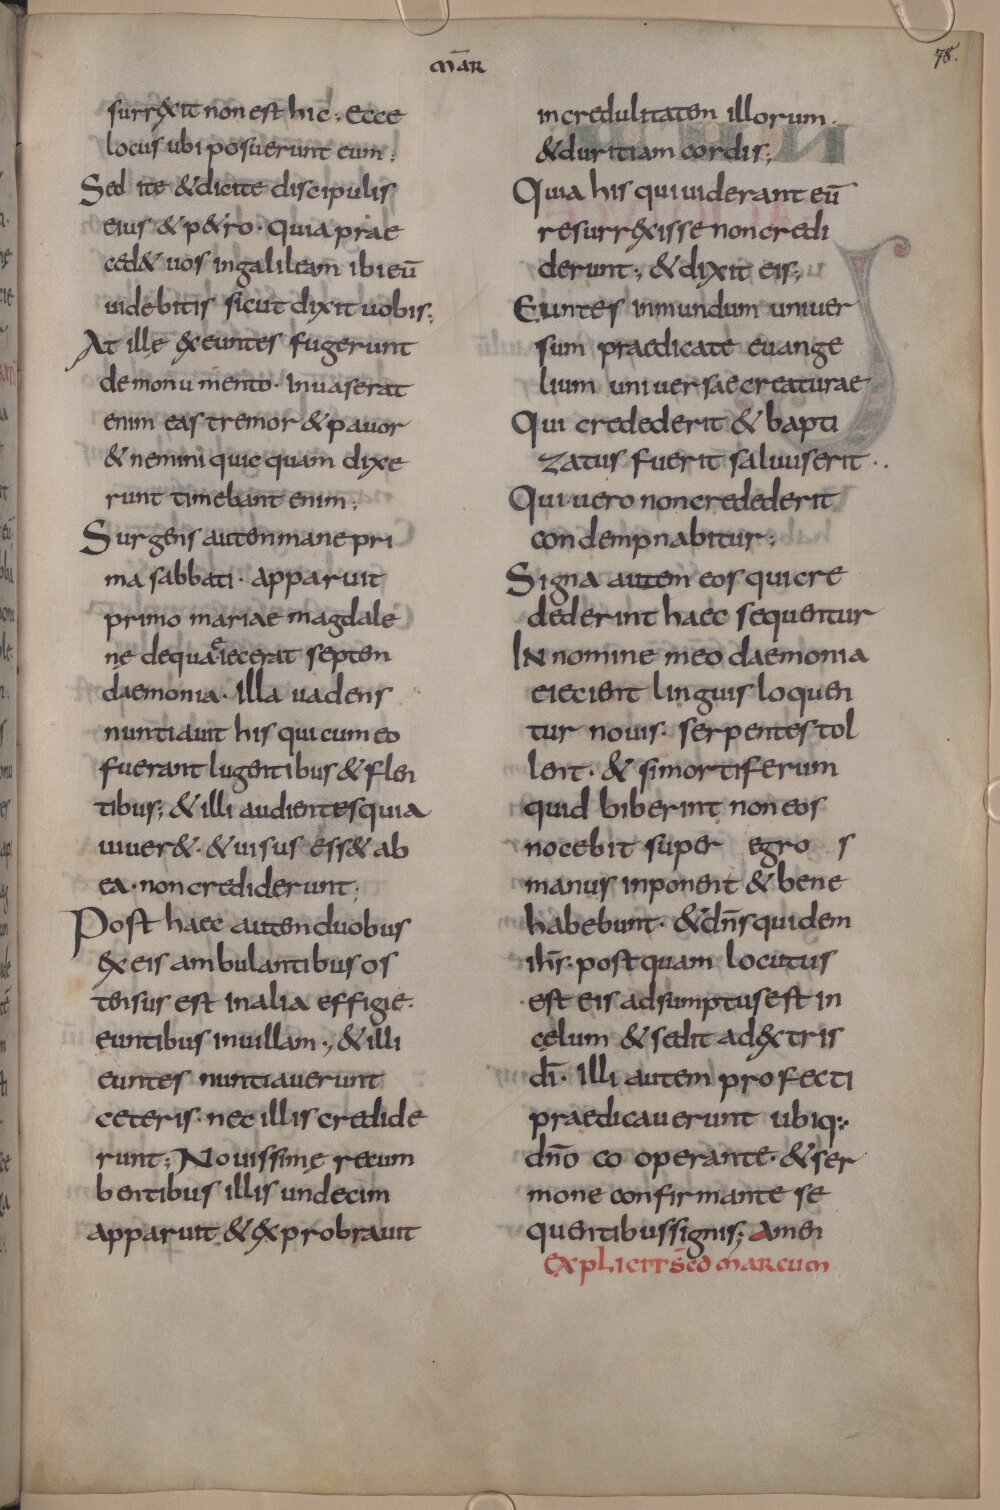 mār
78.
surrexit non est hic; Ecce
locus ubi posuerunt eum;
Sed ite & dicite discipulis
eius & p&ro. Quia prae
ced& uos in galileam ibi eū
uidebitis sicut dixit uobis;
At ille exeuntes fugerunt
de monumento. Inuaserat
enim eas tremor & pauor
& nemini quicquam dixe
runt timebant enim;
Surgens autem mane pri
ma sabbati. apparuit
primo mariae magdale
nę de qua eiecerat septem
daemonia. Illa uadens
nuntiauit his qui cum eo
fuerant lugentibus & flen
tibus; & illi audientes quia
uiuer&. & uisus ess& ab
ea. non crediderunt;
Post haec autem duobus
ex eis ambulantibus os
tensus est in alia effigie.
euntibus in uillam; & illi
euntes nuntiauerunt
ceteris. nec illis credide
runt; Nouissime recum
bentibus illis undecim
apparuit & exprobrauit
incredulitatem illorum.
& duritiam cordis;
Quia his qui uiderant eū
resurrexisse non credi
derunt; & dixit eis;
Euntes in mundum uniuer
sum praedicate euange
lium uniuersae creaturae
Qui crediderit & bapti
zatus fuerit saluus erit..
Qui uero non credederit
condempnabitur;
Signa autem eos qui cre
dederint haec sequentur
IN nomine meo daemonia
eiecient linguis loquen
tur nouis. serpentes tol
lent. & si mortiferum
quid biberint non eos
nocebit super egro s
manus inponent & bene
habebunt. & dn̄s quidem
ih̄s. postquam locutus
est eis adsumptus est in
cęlum & sedit ad extris
dī. Illi autem profecti
praedicauerunt ubiq;
dn̄o co operante. & ser
mone confirmante se
quentibus signis; Amen
explicit sc̄d marcum